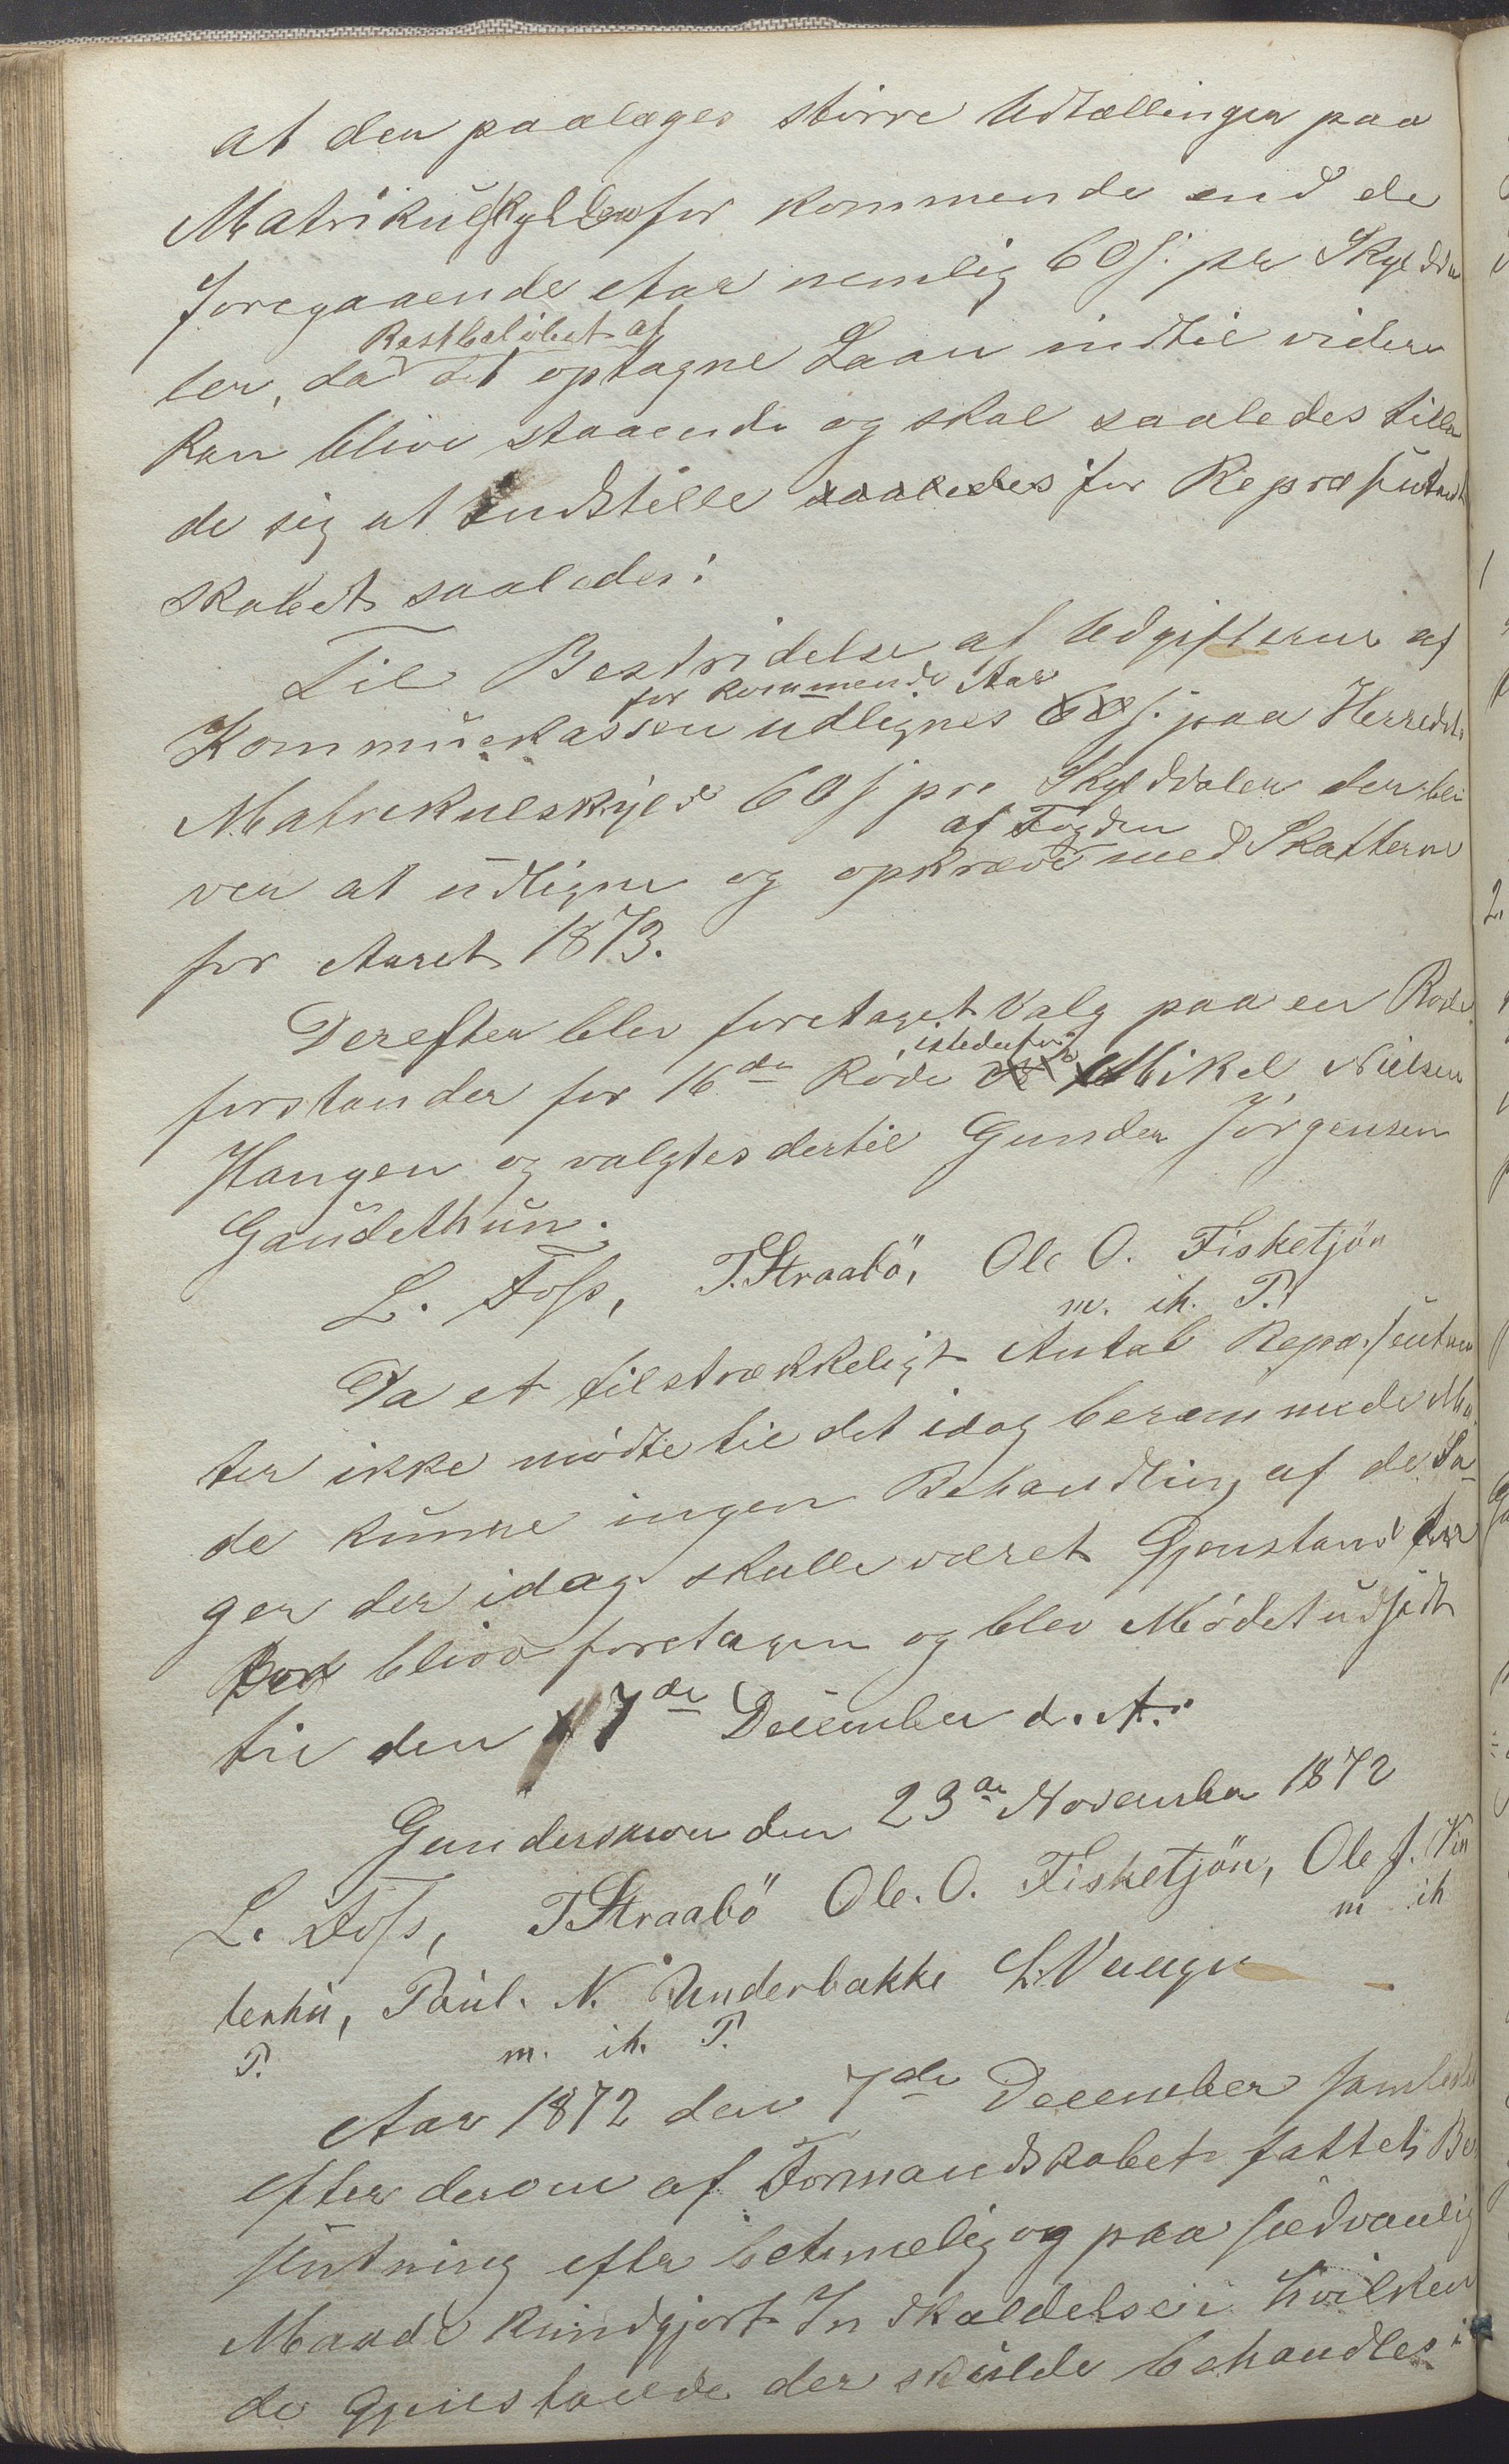 at der paalæges større Udtællinger paa
Matrikulskylden for kommende end de
foregaaende Aar nemlig 60 s. pr Skyldda
Restbeløbet af
ler, da det optagne Laan indtil videre
kan blive staaende og skal saaledes tilla
de sig at indstille saaledes for Repræsentant
skabet saaledes:
Til Bestridelse af Udgifterne af
for kommende Aar
Kommunekassen udlignes 60 s. paa Herredets
Matrikulskyld 60 s pr. Skylddaler der bli
af Fogden
ver at udligne og opkræve med Skatterne
for Aaret 1873.
Derefter blev foretaget Valg paa en Rode
istedenfor
forstander for 16de Rode Mikel Nielsen
Haugen og valgtes dertil Gunder Jørgensen
Gaudethun.
L. Foss, T. Straabö, Ole O. Fisketjön
m. ih. P.
Da et tilstrækkeligt Antal Repræsentan
ter ikke mødte til det idag berammede Mø
de kunne ingen Behandling af de Sa-
ger der idag skulle været Gjenstand for
blive foretagen og blev Mødet udsat
til den 7de December d. A.
den 23de November 1872
L. Foss, T. Straabö Ole. O. Fisketjön, Ole J. Vin
m ih
terhu, Paul. N. Underbakke
P. m. ih. P.
Aar 1872 den 7de December samledes
efter derom af Formandskabet fattet Be
slutning efter betimelig og paa sædvanlig
Maade kundgjort Indkaldelse i hvilken
de Gjenstande der skulde behandles